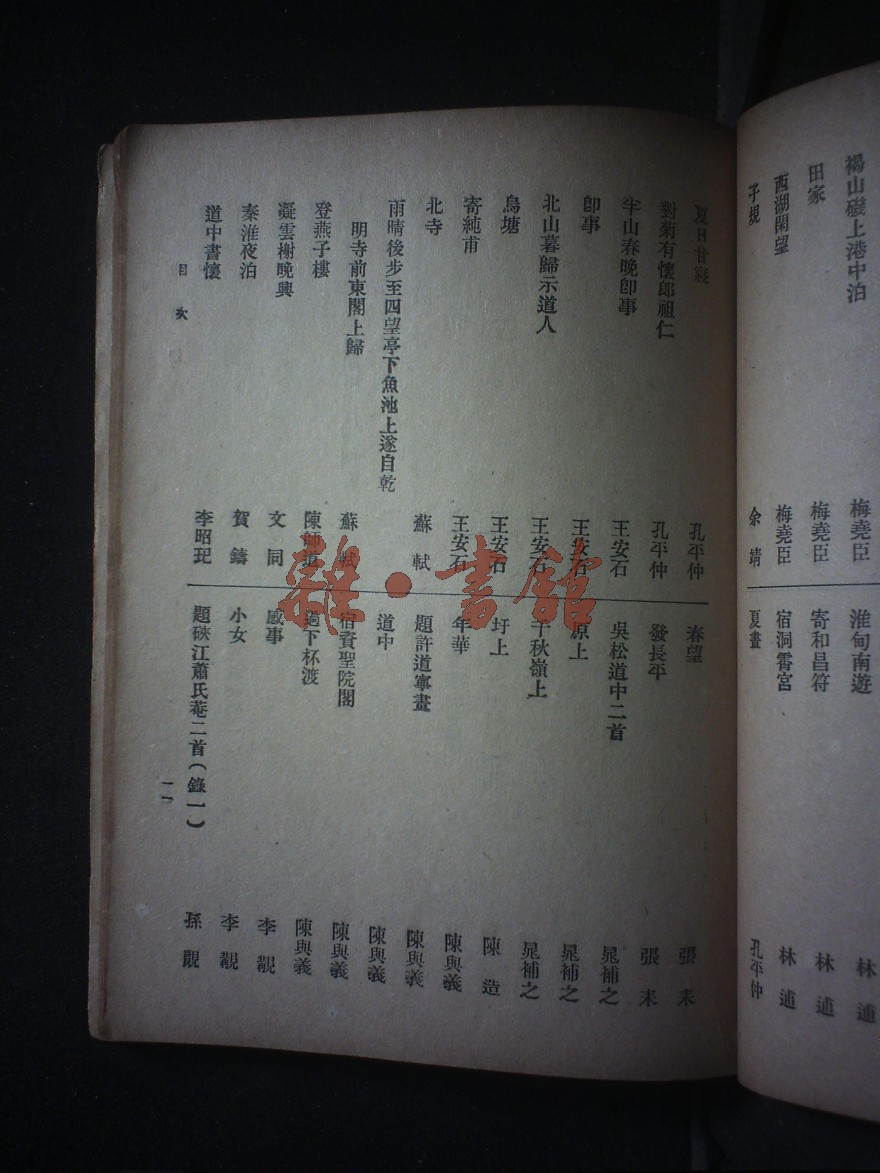 褐山磯上港中泊 梅堯臣
田家 梅堯臣
西湖閑望 梅堯臣
子規 余靖
淮甸南遊 林逋
寄和昌符 林逋
宿洞霄宮 林逋
夏晝 孔平仲
夏日 孔平仲
對菊有懷郎祖仁 孔平仲
半山春晚卽事 王安石
卽事 王安石
北山暮歸示道人 王安石
烏塘 王安石
寄純甫 王安石
北寺 蘇軾
雨晴後步至四望亭下魚池上遂自乾
明寺前東閣上歸 蘇軾
登燕子樓 陳師道
凝雲榭晚興 文同
秦淮夜泊 賀鑄
道中書懷 李昭玘
春望 張耒
發長平 張耒
吳松道中二首 晁補之
原上 晁補之
千秋嶺上 晁補之
圩上 陳造
年華 陳與義
題許道寧畫 陳與義
道中 陳與義
宿資聖院閣 陳與義
過下杯渡 陳與義
感事 李覯
小女 李覯
題硤江蕭氏菴二首(錄一) 孫覿
目次
一一
雜·書館